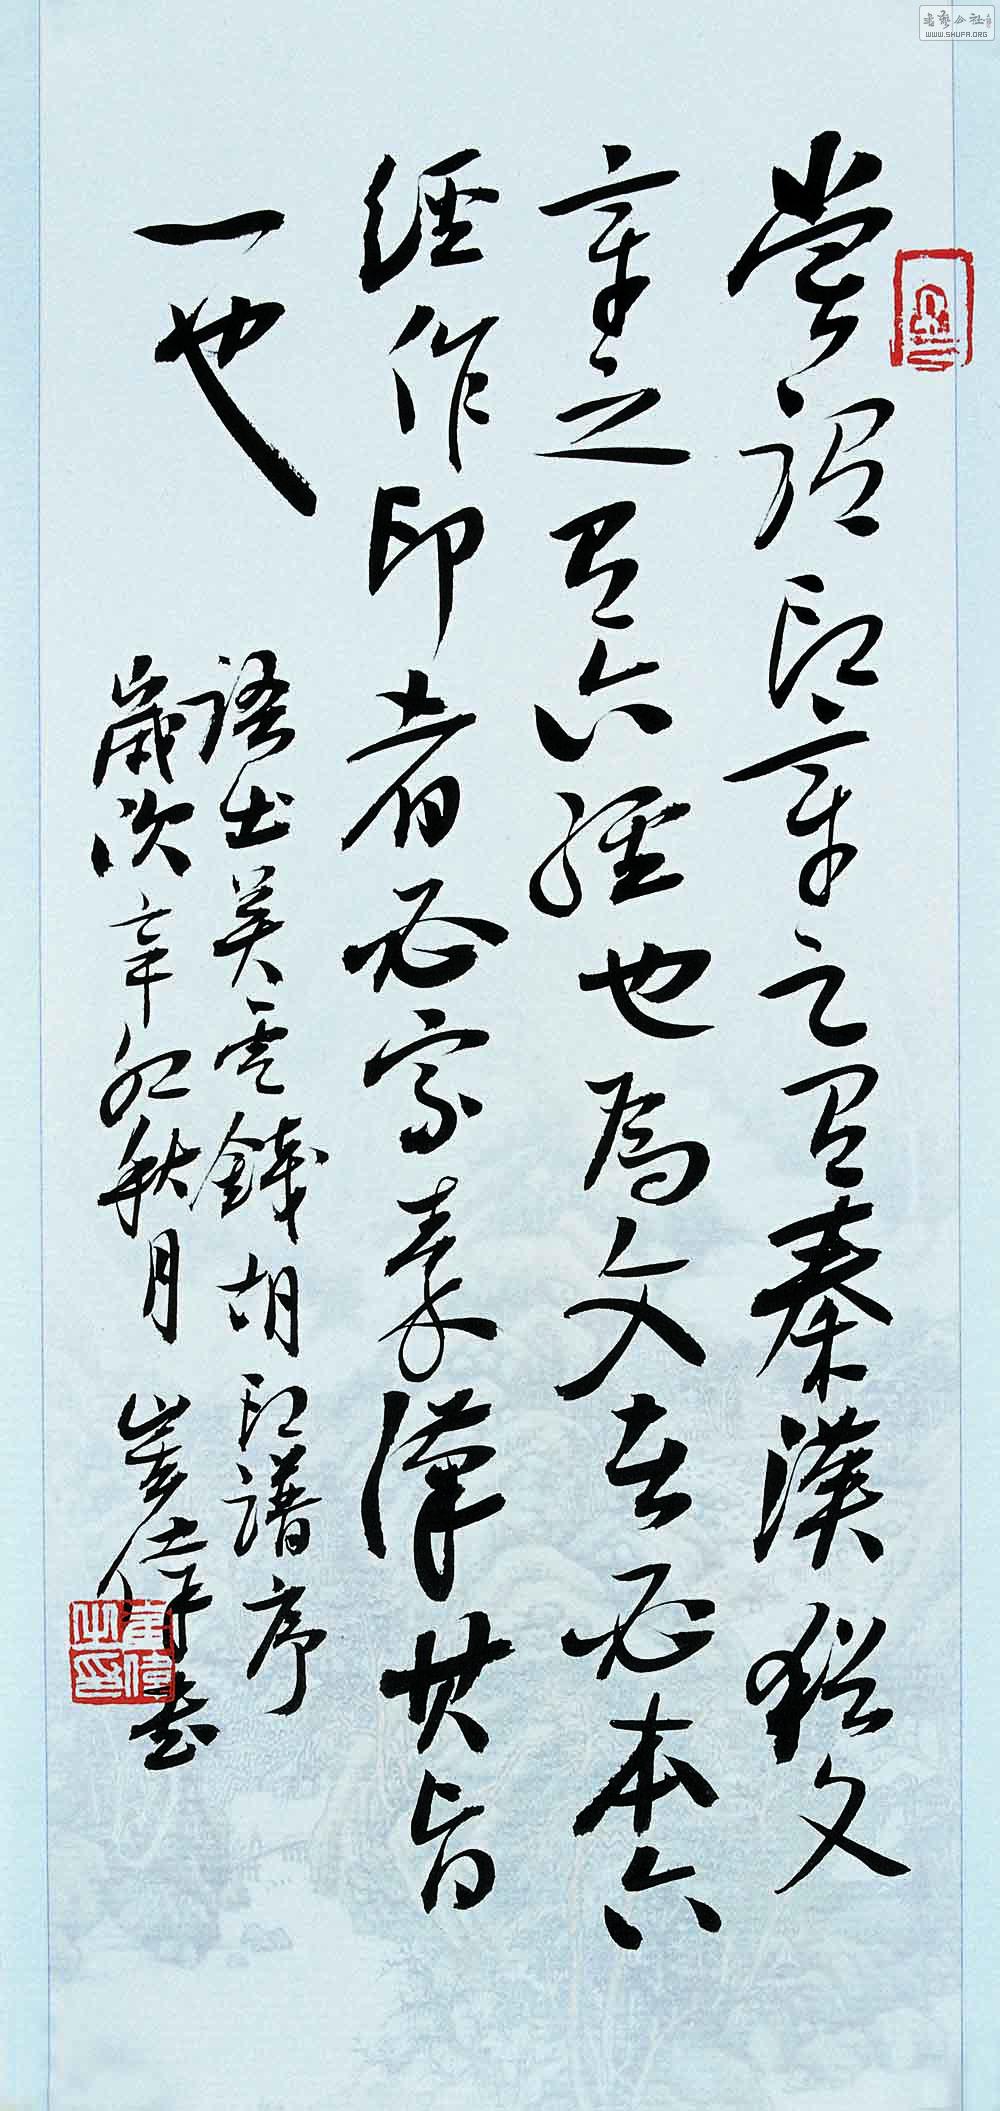 嘗謂印章之有秦漢猶文
章之有六經也爲文者必本六
經作印者必宗秦漢其旨
一也
語出吴雲錢胡印譜序
歲次辛卯秋月 崔偉書
WWW.SHUFA.ORG